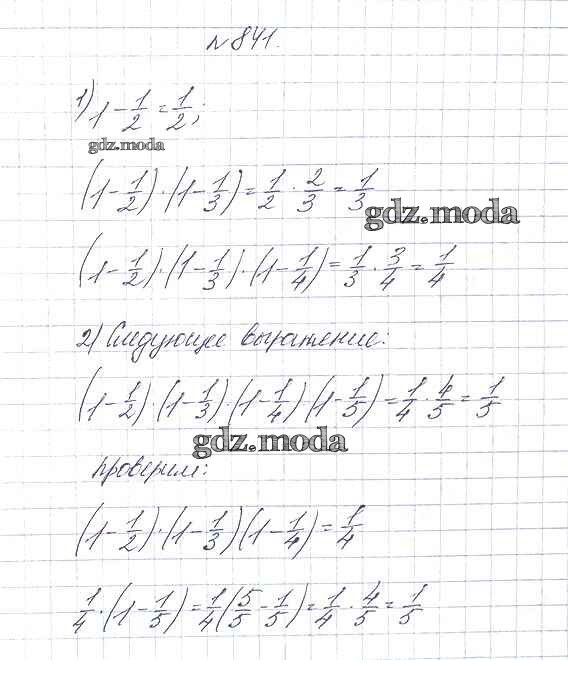 № 841.
1) 1 - 1/2 = 1/2;
gdz.moda
(1 - 1/2) · (1 - 1/3) = 1/2 · 2/3 = 1/3
gdz.moda
(1 - 1/2) · (1 - 1/3) · (1 - 1/4) = 1/3 · 3/4 = 1/4
2) Следующее выражение:
(1 - 1/2) · (1 - 1/3) · (1 - 1/4) (1 - 1/5) = 1/4 · 4/5 = 1/5
gdz.moda
проверим:
(1 - 1/2) · (1 - 1/3) (1 - 1/4) = 1/4
1/4 · (1 - 1/5) = 1/4 (5/5 - 1/5) = 1/4 · 4/5 = 1/5